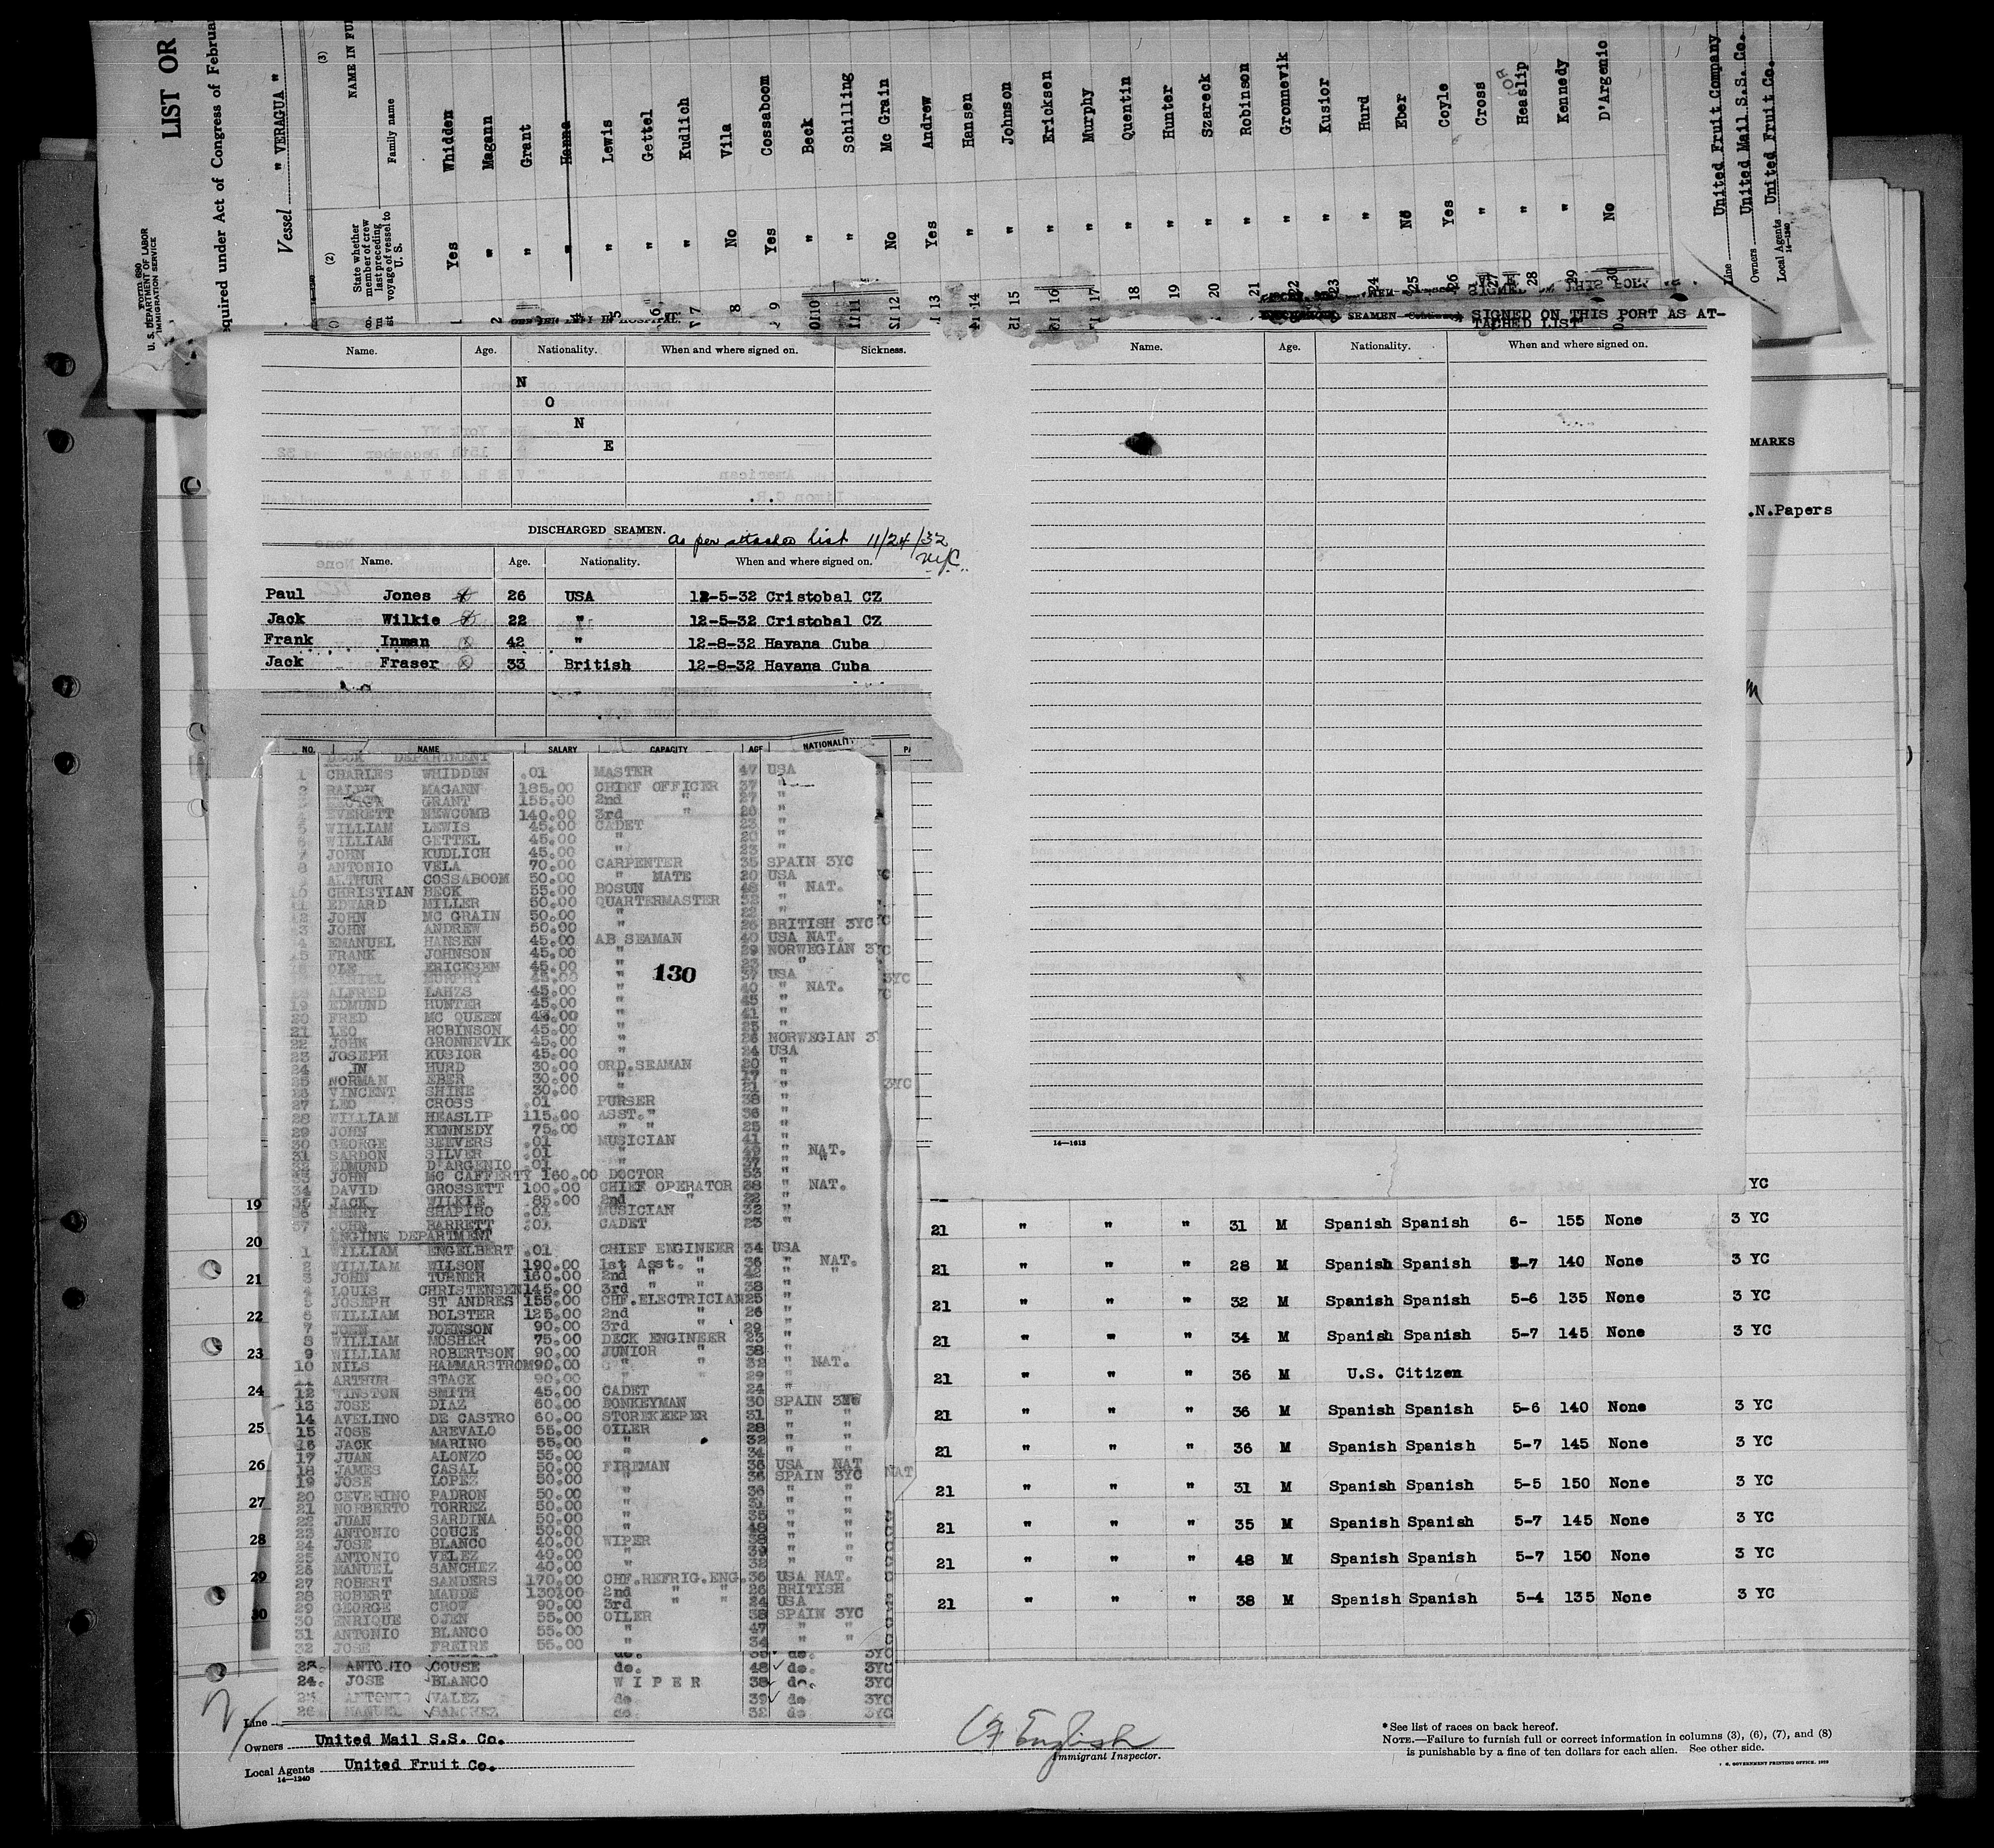 LIST OR
Form 680
U. S. DEPARTMENT OF LABOR
IMMIGRATION SERVICE
equired under Act of Congress of Februa
Vessel " VERAGUA "
(2)
State whether member of crew last preceding voyage of vessel to U. S.
(3)
NAME IN FU
Family name
1 Yes Whidden
2 " Magann
" Grant
" Hanna
5 " Lewis
6 " Gettel
7 " Kudlich
8 No Vila
9 Yes Cossaboom
10 " Beck
11 " Schilling
12 No Mc Grain
13 Yes Andrew
14 " Hansen
15 " Johnson
16 " Ericksen
17 " Murphy
18 " Quentin
19 " Hunter
20 " Szareck
21 " Robinson
22 " Gronnevik
23 " Kusior
24 " Hurd
25 No Eber
26 Yes Coyle
27 " Cross
28 " Heaslip
29 " Kennedy
30 No D'Argenio
Line United Fruit Company
Owners United Mail S.S. Co.
Local Agents United Fruit Co.
14—1240
Name. Age. Nationality. When and where signed on. Sickness.
N
O
N
E
DISCHARGED SEAMEN. As per attached list 11/24/32
NYC
Name. Age. Nationality. When and where signed on.
Paul Jones 26 USA 12-5-32 Cristobal CZ
Jack Wilkie 22 " 12-5-32 Cristobal CZ
Frank Inman 42 " 12-8-32 Havana Cuba
Jack Fraser 33 British 12-8-32 Havana Cuba
SEAMEN SIGNED ON THIS PORT AS AT-
TACHED LIST
Name. Age. Nationality. When and where signed on.
14—1613
MARKS
.N.Papers
NO. NAME SALARY CAPACITY AGE NATIONALITY
DECK DEPARTMENT
1 CHARLES WHIDDEN .01 MASTER 47 USA
2 RALPH MAGANN 185.00 CHIEF OFFICER 37 "
GRANT 155.00 2nd " 27 "
4 EVERETT NEWCOMB 140.00 3rd "
5 WILLIAM LEWIS 45.00 CADET 23 "
6 WILLIAM GETTEL 45.00 " 20 "
7 JOHN KUDLICH 45.00 " 23 "
8 ANTONIO VELA 70.00 CARPENTER 35 SPAIN 3YC
ARTHUR COSSABOOM 50.00 " MATE 20 USA
10 CHRISTIAN BECK 55.00 BOSUN 48 " NAT.
11 EDWARD MILLER 50.00 QUARTERMASTER 32 "
12 JOHN MC GRAIN 50.00 " 22 "
13 JOHN ANDREW 50.00 " 26 BRITISH 3YC
4 EMANUEL HANSEN 45.00 AB SEAMAN 40 USA NAT.
15 FRANK JOHNSON 45.00 " 29 NORWEGIAN 3YC
OLE ERICKSEN 45.00 " 23 "
MURPHY 45.00 " 37 USA
130
ALFRED LAHZS 45.00 " 40 " NAT.
19 EDMUND HUNTER 45.00 " 45 "
20 FRED MC QUEEN " 41 "
21 LEO ROBINSON 45.00 " 25 "
22 JOHN GRONNEVIK 45.00 " 26 NORWEGIAN 3
23 JOSEPH KUSIOR 45.00 " 24 USA
24 IN HURD 30.00 ORD.SEAMAN 20 "
25 NORMAN EBER 30.00 " 17 "
26 VINCENT SHINE 30.00 " 21 "
27 LEO CROSS .01 PURSER 38 "
28 WILLIAM HEASLIP 115.00 ASST." 36 "
29 JOHN KENNEDY 75.00 " " 25 "
30 GEORGE SEEVERS .01 MUSICIAN 41 "
31 SARDON SILVER .01 " " NAT.
32 EDMUND D'ARGENIO .01 " "
33 JOHN MC CAFFERTY 160.00 DOCTOR 53 "
34 DAVID GROSSETT 100.00 CHIEF OPERATOR 28 " NAT.
35 JACK WILKIE 85.00 2nd " 22 "
6 HENRY SHAPIRO .01 MUSICIAN 32 "
37 JOHN BARRETT .01 CADET 23 "
ENGINE DEPARTMENT
1 WILLIAM ENGELBERT .01 CHIEF ENGINEER 34 USA
2 WILLIAM WILSON 190.00 1st Asst. " 36 " NAT.
3 JOHN TURNER 160.00 2nd " " 42 " "
4 LOUIS CHRISTENSEN 145.00 3rd " " 38 "
5 JOSEPH ST ANDRES 155.00 CHF.ELECTRICIAN 25 "
6 WILLIAM BOLSTER 125.00 2nd " 26 "
7 JOHN JOHNSON 90.00 3rd " 29 "
8 WILLIAM MOSHER 75.00 DECK ENGINEER 23 "
9 WILLIAM ROBERTSON 90.00 JUNIOR " 38 "
10 NILS HAMMARSTROM 90.00 " " 32 " NAT.
ARTHUR STACK 90.00 " 29 "
12 WINSTON SMITH 45.00 CADET 24 "
13 JOSE DIAZ 60.00 DONKEYMAN 30 SPAIN
14 AVELINO DE CASTRO 60.00 STOREKEEPER 31 " "
15 JOSE AREVALO 55.00 OILER 28 " "
16 JACK MARINO 55.00 " 32 " "
17 JUAN ALONZO 55.00 " 34 " "
18 JAMES CASAL 50.00 FIREMAN 36 USA NAT
19 JOSE LOPEZ 50.00 " 36 SPAIN 3YC
20 CEVERINO PADRON 50.00 " 36 " "
21 NORBERTO TORREZ 50.00 " 31 " "
22 JUAN SARDINA 50.00 " 35 " "
23 ANTONIO COUCE 50.00 " 48 " "
24 JOSE BLANCO 40.00 WIPER 38 " "
25 ANTONIO VELEZ 40.00 " 39 " "
26 MANUEL SANCHEZ 40.00 " 32 " "
27 ROBERT SANDERS 170.00 CHF.REFRIG.ENG. 36 USA NAT.
28 ROBERT MAUDE 130.00 2nd " " 26 BRITISH
29 GEORGE CROW 90.00 3rd " " 24 USA
30 ENRIQUE OJEN 55.00 OILER 38 SPAIN 3YC
31 ANTONIO BLANCO 55.00 " 47 " "
32 JOSE FREIRE 55.00 " 34 " "
23. ANTONIO COUSE do. 48 do. 3YC
24. JOSE BLANCO WIPER 38 do. 3YC
25 ANTONIO VALEZ do 39 do 3YC
26 MANUEL SANCHEZ do. 32 do 3YC
YC
19
21 " " " 31 M Spanish Spanish 6- 155 None 3 YC
20
21 " " " 28 M Spanish Spanish 5-7 140 None 3 YC
21
21 " " " 32 M Spanish Spanish 5-6 135 None 3 YC
22
21 " " " 34 M Spanish Spanish 5-7 145 None 3 YC
23
21 " " " 36 M U.S. Citizen
24
21 " " " 36 M Spanish Spanish 5-6 140 None 3 YC
25
21 " " " 36 M Spanish Spanish 5-7 145 None 3 YC
26
21 " " " 31 M Spanish Spanish 5-5 150 None 3 YC
27
21 " " " 35 M Spanish Spanish 5-7 145 None 3 YC
28
21 " " " 48 M Spanish Spanish 5-7 150 None 3 YC
29
21 " " " 38 M Spanish Spanish 5-4 135 None 3 YC
30
Line
Owners United Mail S.S. Co.
Local Agents United Fruit Co.
14—1240
English
Immigrant Inspector.
*See list of races on back hereof.
NOTE.—Failure to furnish full or correct information in columns (3), (6), (7), and (8)
is punishable by a fine of ten dollars for each alien. See other side.
GOVERNMENT PRINTING OFFICE